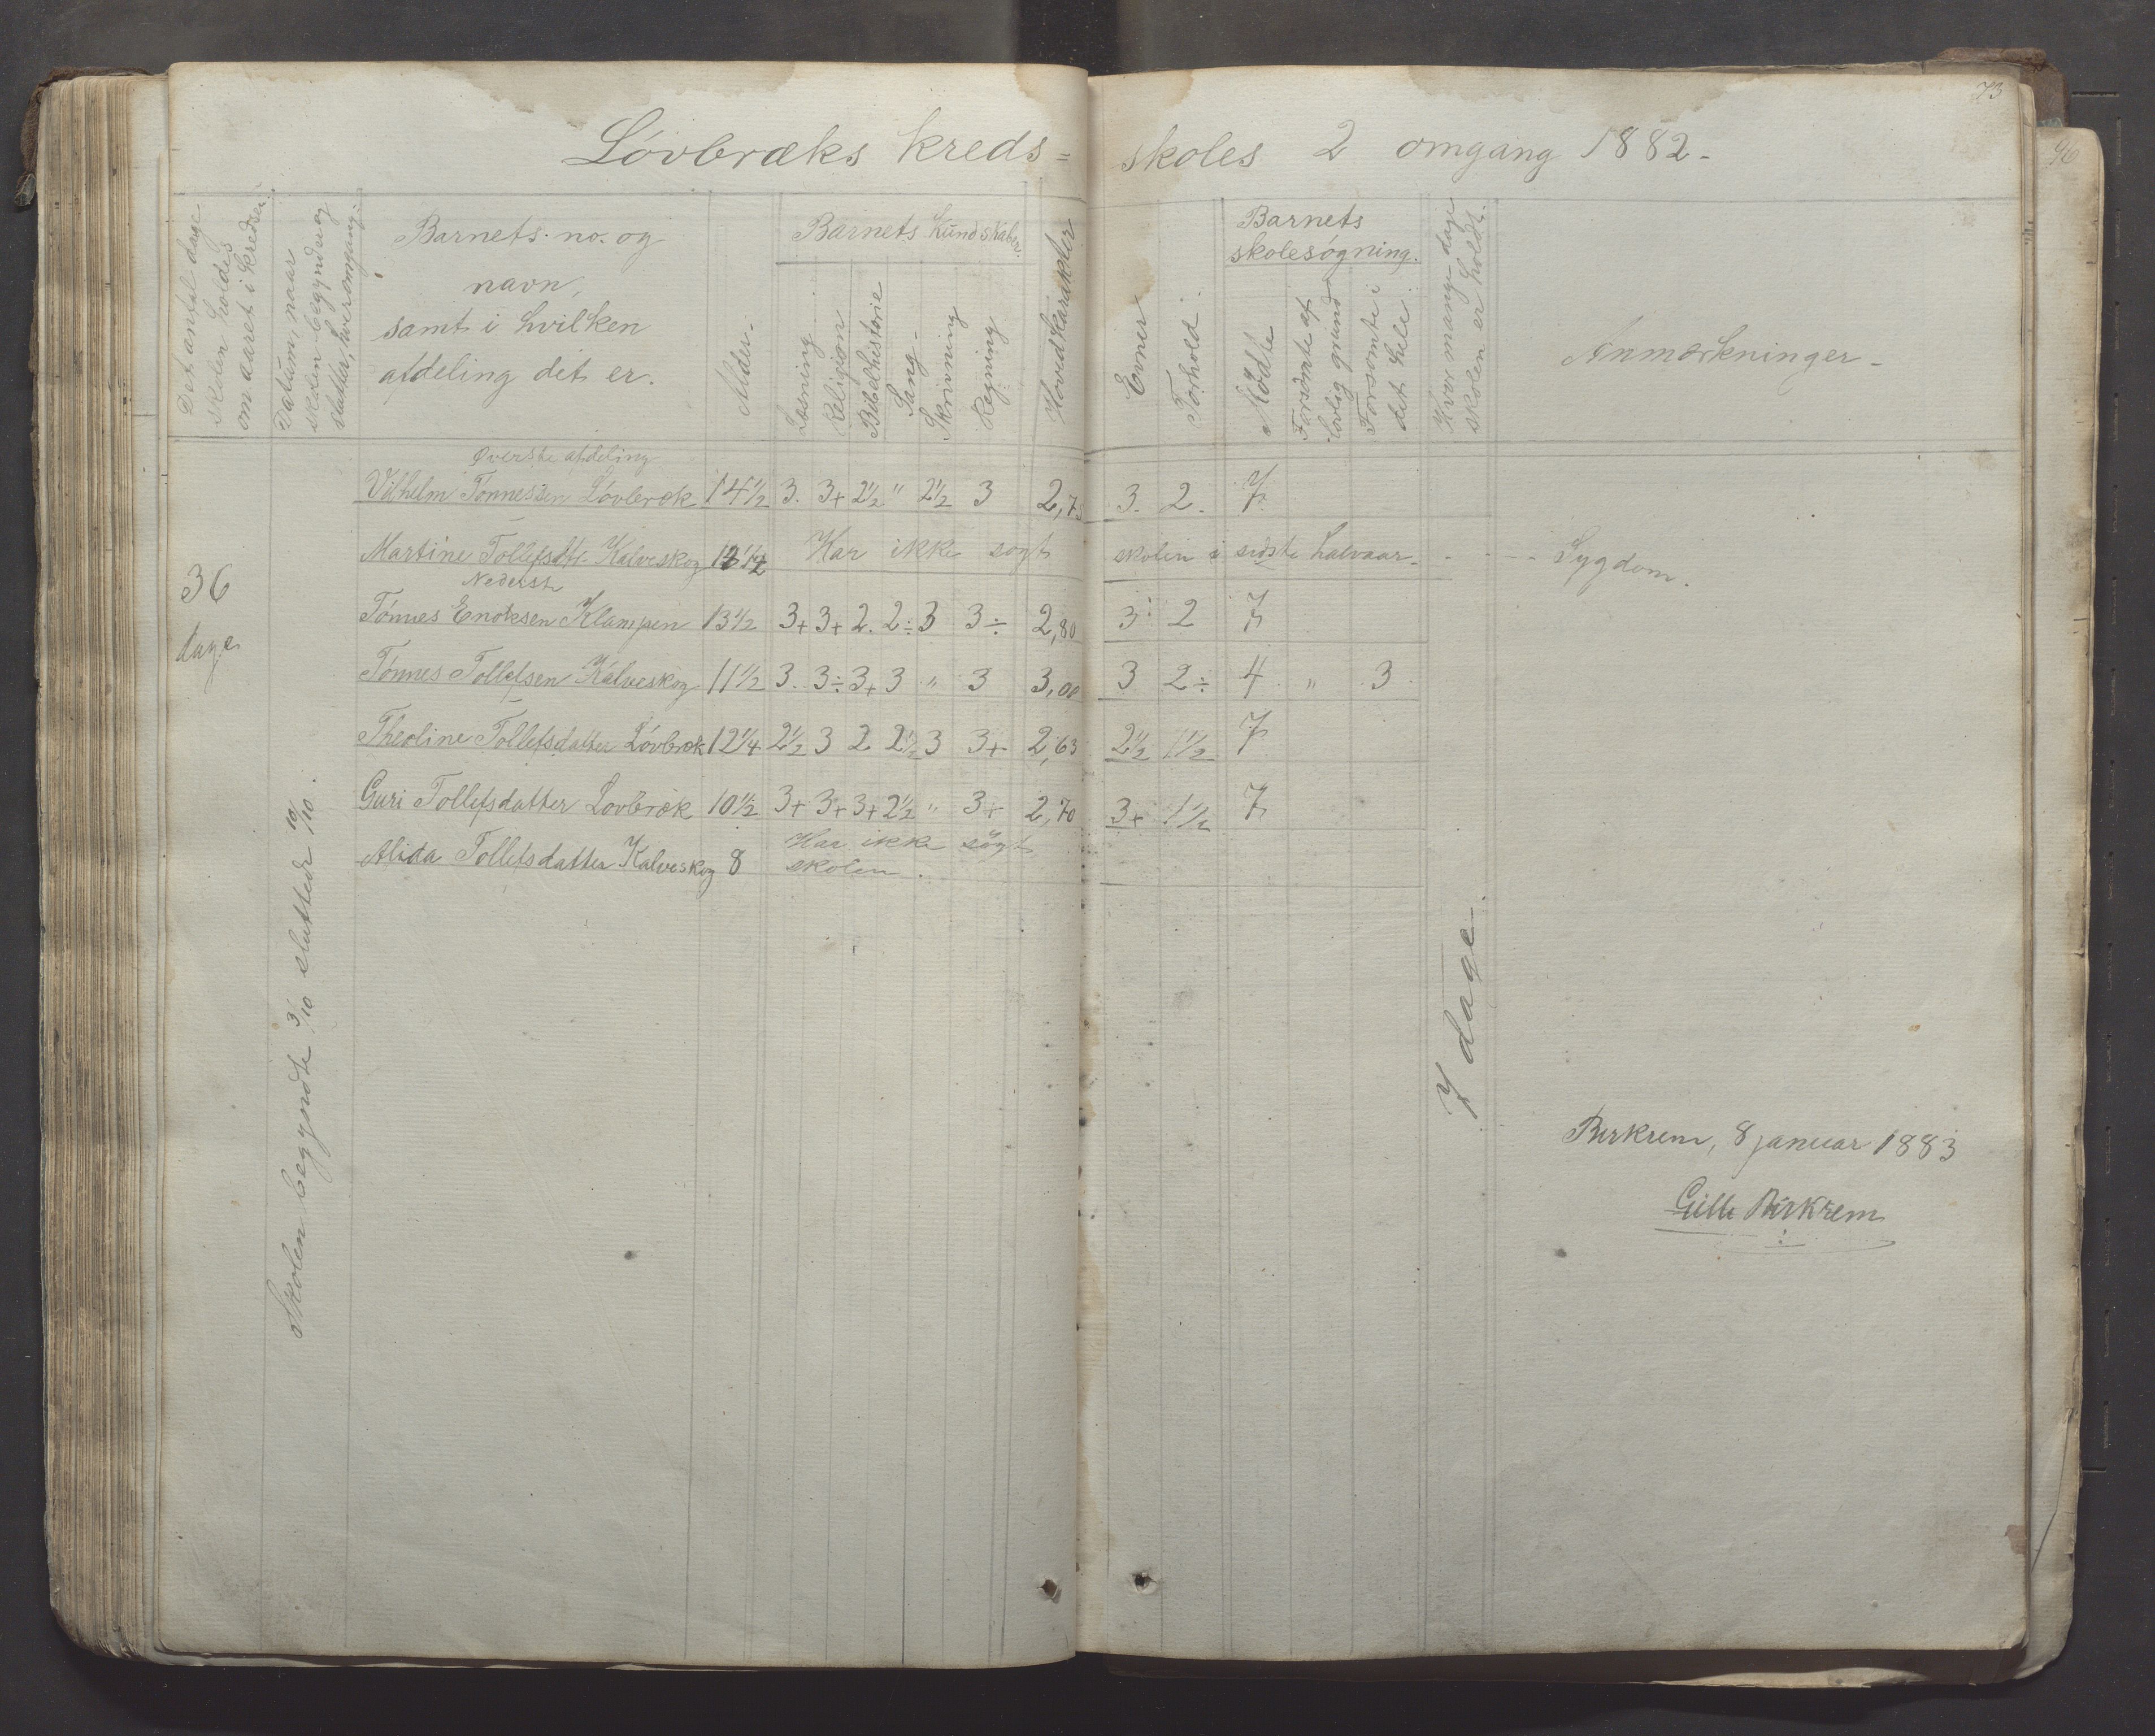 73
96
Løvbræks kreds=
skoles 2 omgang 1882.
Det antal dage
skolen holdes
om aaret i kredsen.
Datum, naar
skolen begynder og
slutter, hver omgang.
Barnets no. og
navn,
samt i hvilken
afdeling det er.
Alder.
Barnets kundskaber.
Læsning
Religion
Bibelhistorie
Sang
Skrivning
Regning
Hovedkarakter
Evner
Forhold.
Barnets
skolesøgning.
Mødte
Forsømte af
lovlig grund
Forsømte i
det hele.
Hvor mange dage
skolen er holdt.
Anmærkninger
Øverste afdeling
Vilhelm Tønnessen Løvbræk 14½ 3. 3+ 2½ " 2½ 3 2,75 3. 2. 7
Martine Tollefsdtr. Kalveskog Har ikke søgt skolen i sidste halvaar. - - - Sygdom.
Nederste
Tønnes Enoksen Klampen 13½ 3+ 3+ 2. 2÷ 3 3÷ 2,80 3 2 7
Tønnes Tollefsen Kalveskog 11½ 3. 3÷ 3+ 3 " 3 3,00 3 2÷ 4 " 3
Theoline Tollefsdatter Løvbræk 12¼ 2½ 3 2 2½ 3 3+ 2,63 2½ 1½ 7
Guri Tollefsdatter Løvbræk 10½ 3+ 3+ 3+ 2½ " 3+ 2,70 3+ 1½ 7
Alida Tollefsdatter Kalveskog 8 Har ikke søgt
skolen.
36
dage
Skolen begyndte 3/10 sluttede 10/10.
7 dage.
Birkrem, 8 januar 1883
Birkrem